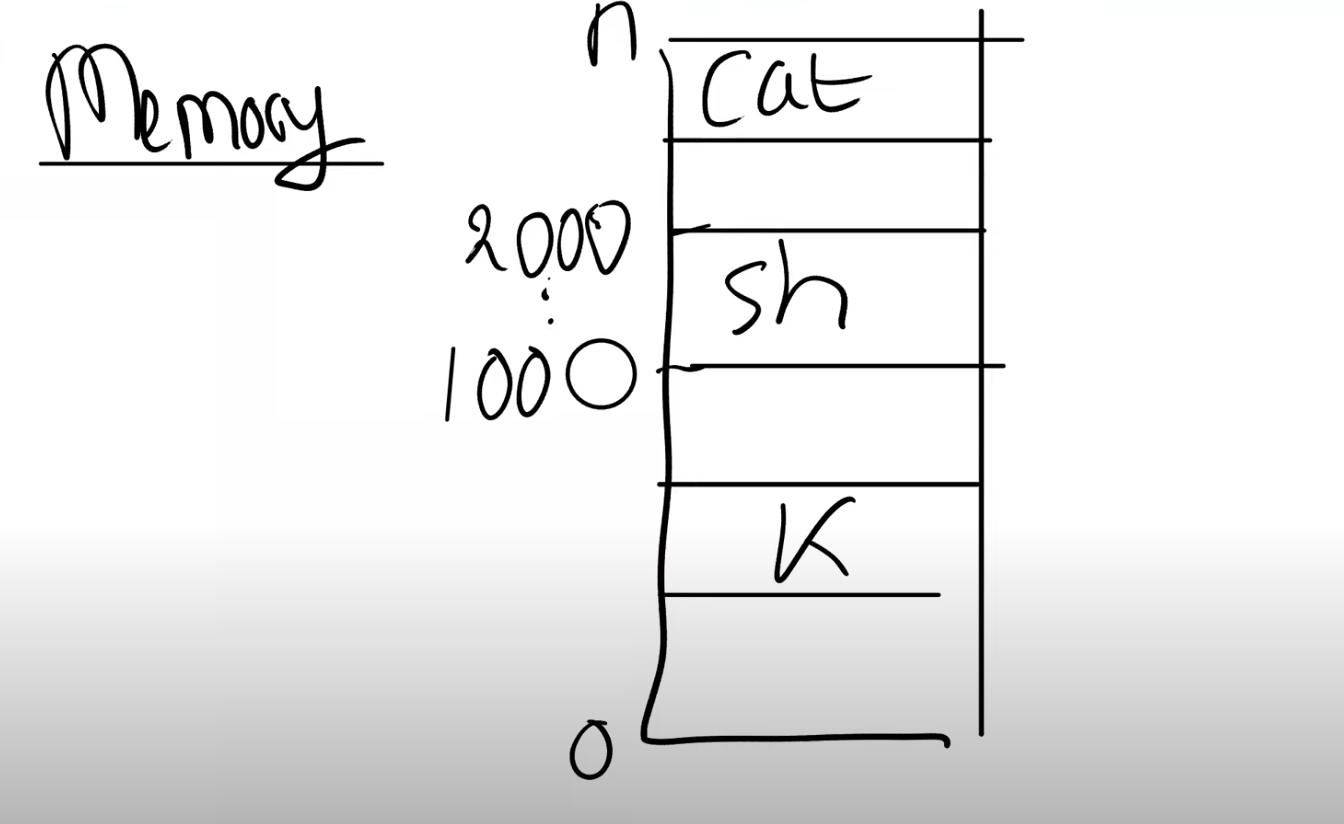 n
Memory
cat
2000
sh
1000
K
0